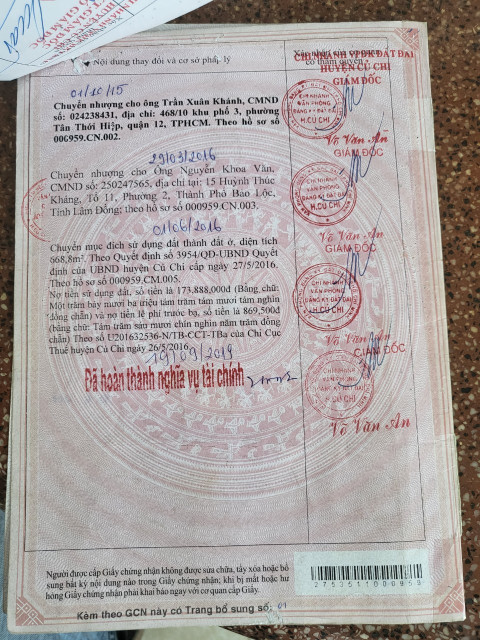 Nội dung thay đổi và cơ sở pháp lý
Xác nhận của cơ quan
có thẩm quyền
CHI NHÁNH VPĐK ĐẤT ĐAI
HUYỆN CỦ CHI
GIÁM ĐỐC
01/10/15
Chuyển nhượng cho ông Trần Xuân Khánh, CMND
số: 024238431, địa chỉ: 468/10 khu phố 3, phường
Tân Thới Hiệp, quận 12, TPHCM. Theo hồ sơ số
006959.CN.002.
CHI NHÁNH
VĂN PHÒNG
ĐĂNG KÝ ĐẤT ĐAI
H.CỦ CHI
Võ Văn An
GIÁM ĐỐC
29/03/2016
Chuyển nhượng cho Ông Nguyễn Khoa Văn,
CMND số: 250247565, địa chỉ tại: 15 Huỳnh Thúc
Kháng, Tổ 11, Phường 2, Thành Phố Bảo Lộc,
Tỉnh Lâm Đồng; theo hồ sơ số 000959.CN.003.
CHI NHÁNH
VĂN PHÒNG
ĐĂNG KÝ ĐẤT ĐAI
H.CỦ CHI
Võ Văn An
GIÁM ĐỐC
01/06/2016
Chuyển mục đích sử dụng đất thành đất ở, diện tích
668,8m². Theo Quyết định số 3954/QĐ-UBND Quyết
định của UBND huyện Củ Chi cấp ngày 27/5/2016.
Theo hồ sơ số 000959.CM.005.
Nợ tiền sử dụng đất, số tiền là 173.888,000đ (Bằng chữ:
Một trăm bảy mươi ba triệu tám trăm tám mươi tám nghìn
đồng chẵn) và nợ tiền lệ phí trước bạ, số tiền là 869,500đ
(bằng chữ: Tám trăm sáu mươi chín nghìn năm trăm đồng
chẵn) Theo số U201632536-N/TB-CCT-TBa của Chi Cục
Thuế huyện Củ Chi ngày 26/5/2016.
CHI NHÁNH
VĂN PHÒNG
ĐĂNG KÝ ĐẤT ĐAI
H.CỦ CHI
Võ Văn An
GIÁM ĐỐC
Đã hoàn thành nghĩa vụ tài chính
CHI NHÁNH
VĂN PHÒNG
ĐĂNG KÝ ĐẤT ĐAI
H.CỦ CHI
Võ Văn An
Người được cấp Giấy chứng nhận không được sửa chữa, tẩy xóa hoặc bổ
sung bất kỳ nội dung nào trong Giấy chứng nhận; khi bị mất hoặc hư
hỏng Giấy chứng nhận phải khai báo ngay với cơ quan cấp Giấy.
Kèm theo GCN này có Trang bổ sung số: 01